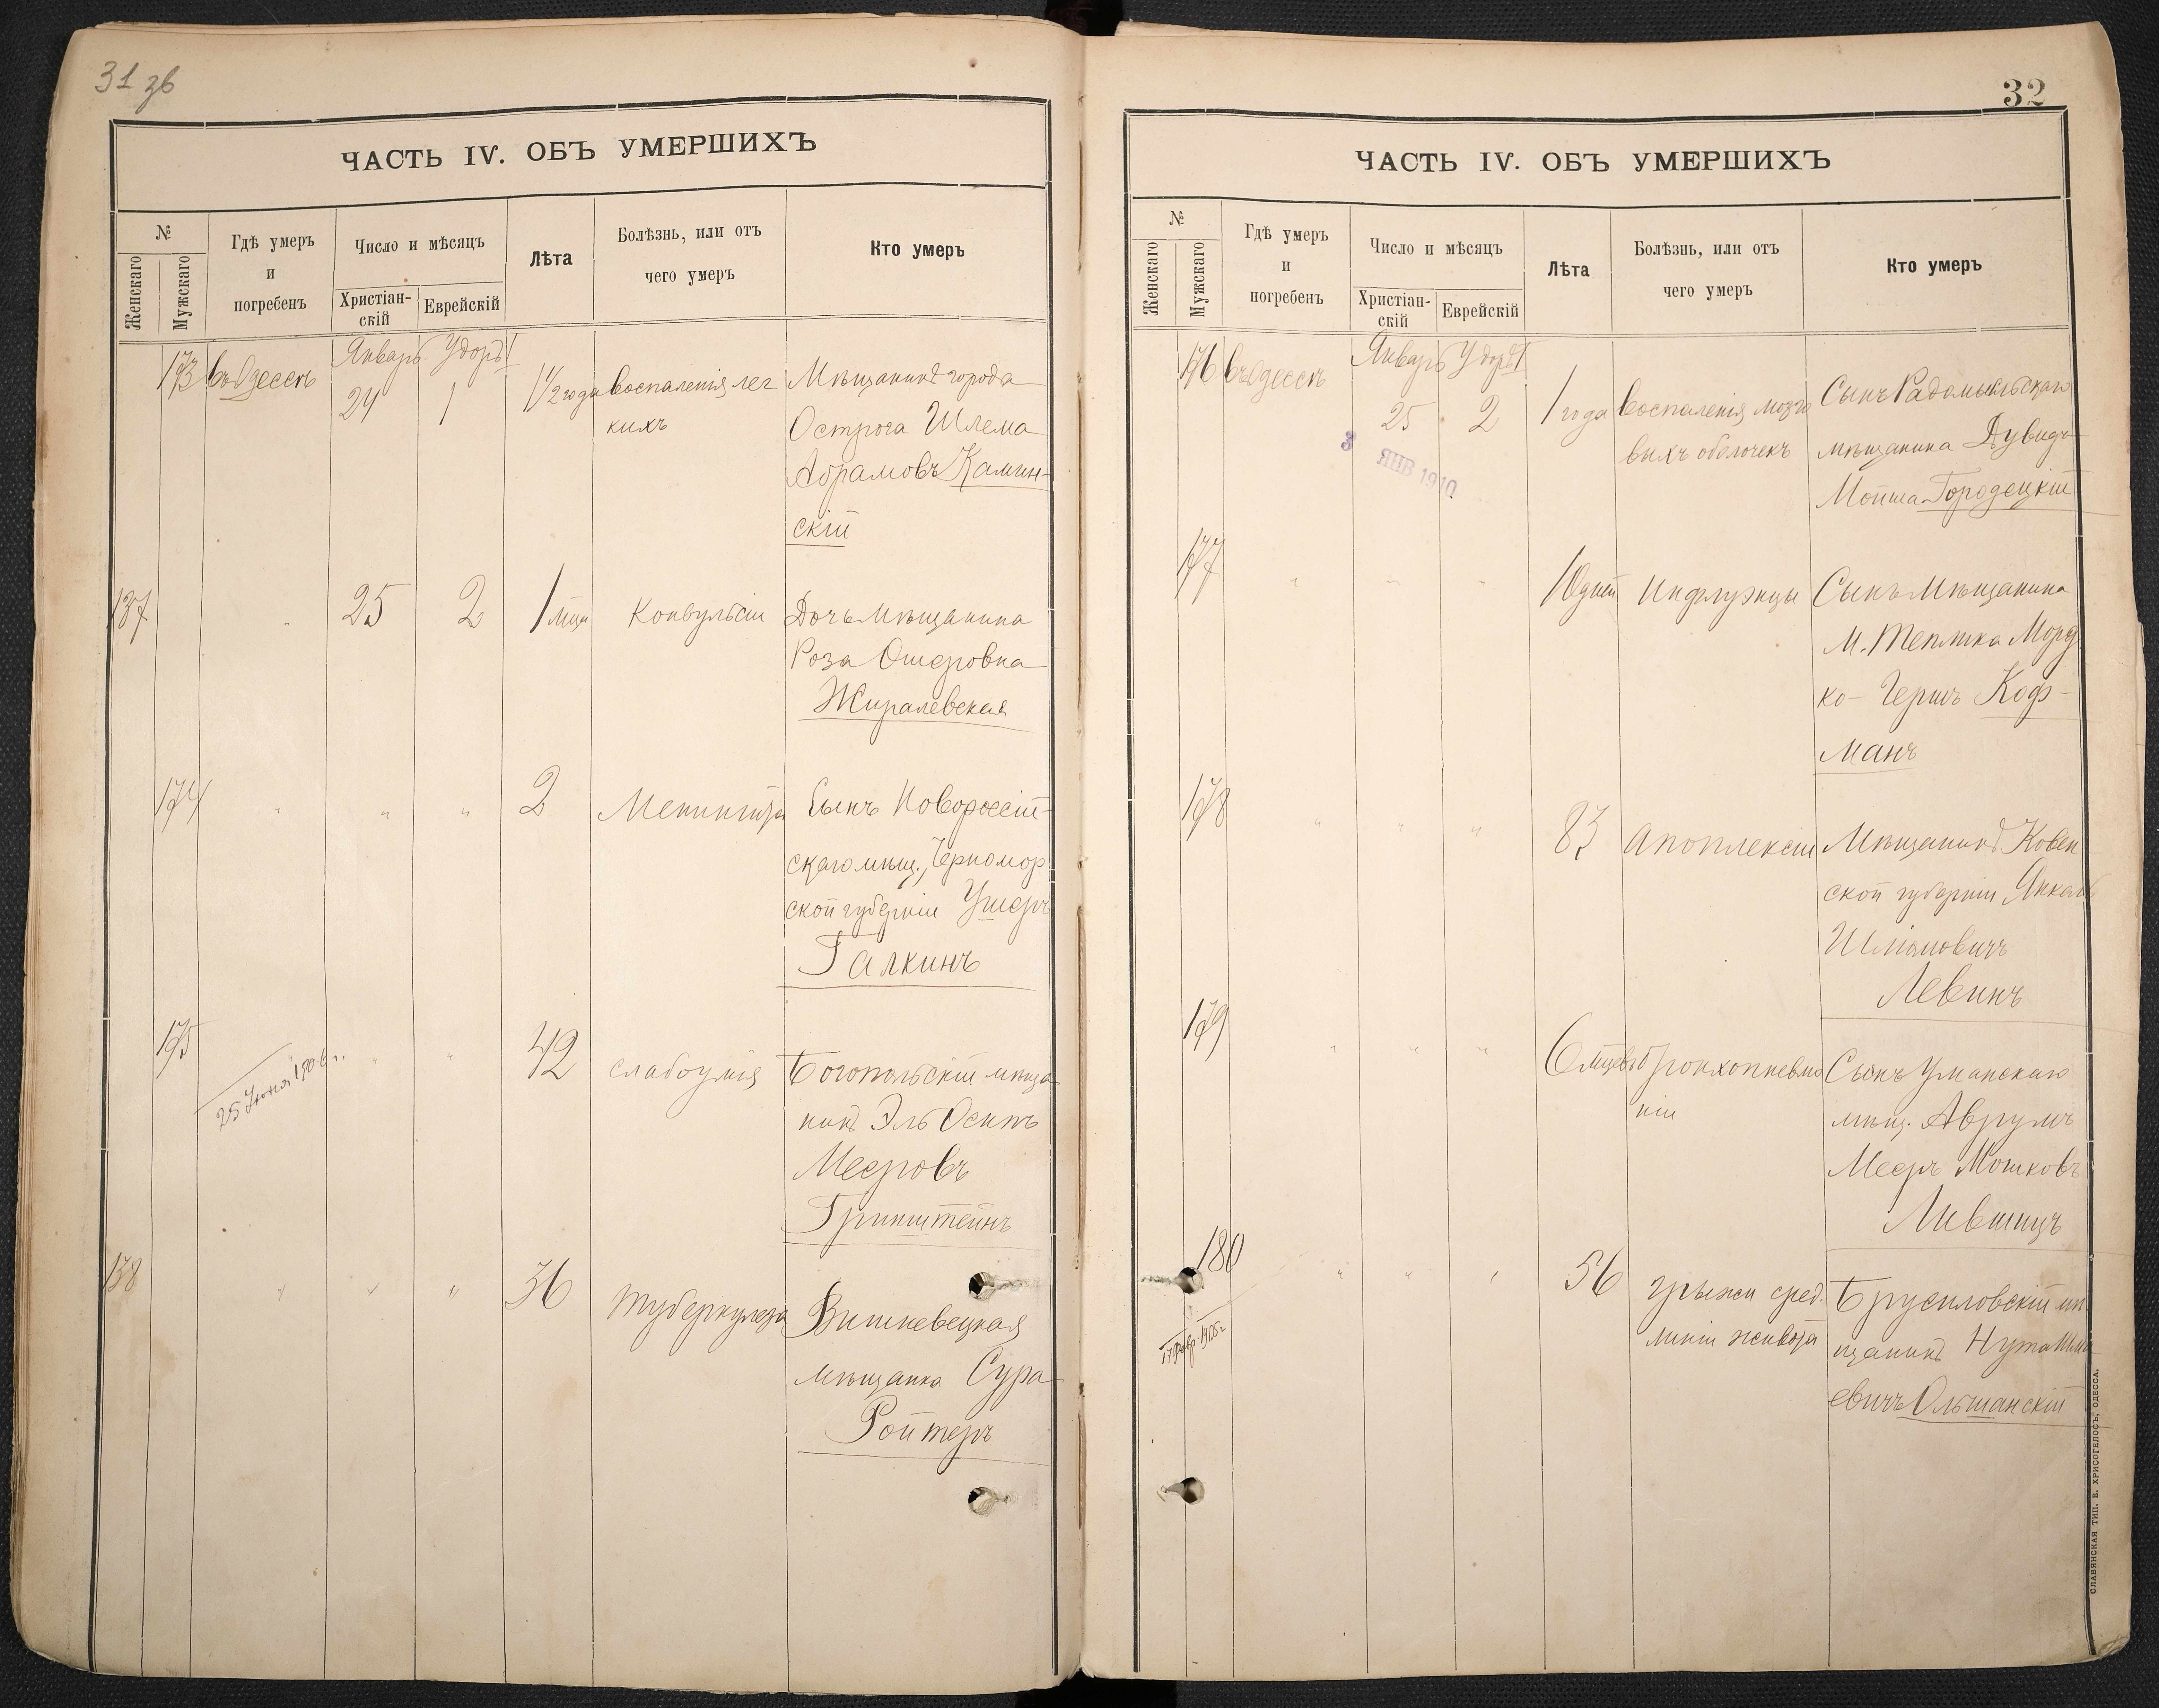 31 зв
ЧАСТЬ IV. ОБЪ УМЕРШИХЪ
№
Женскаго
Мужскаго
Гдѣ умеръ
и
погребенъ
Число и мѣсяцъ
Христіан-
скій
Еврейскій
Лѣта
Болѣзнь, или отъ
чего умеръ
Кто умеръ
173 въ Одессѣ Январь 24 1 1 1/2 года воспаленія лег
кихъ
Мѣщанинъ города
Острога Шлема
Абрамовъ Камин-
скій
137 " 25 2 1 мца Конвульсіи Дочь мѣщанина
Роза Ошеровна
174 " " " 2 Менингита Сынъ Новороссій-
скаго мѣщ., Черномор
ской губерніи Ушеръ
Галкинъ
175 " " " 42 слабоумія Богопольскій мѣща
нинъ Эль Осипъ
Мееровъ
Гринштейнъ
25 Іюня 1906 г.
138 " " " 36 туберкулеза Вишневецкая
мѣщанка Сура
Ройтеръ
32
ЧАСТЬ IV. ОБЪ УМЕРШИХЪ
№
Женскаго
Мужскаго
Гдѣ умеръ
и
погребенъ
Число и мѣсяцъ
Христіан-
скій
Еврейскій
Лѣта
Болѣзнь, или отъ
чего умеръ
Кто умеръ
176 въ Одессѣ Январь 25 2 1 года воспаленія мозго
выхъ оболочекъ
Сынъ Радомысльскаго
мѣщанина Дувидъ
Мойша Городецкій
3 ЯНВ 1910
177 " " " 10 дней Инфлуэнцы Сынъ мѣщанина
м. Теплика Морд
ко-Гершъ Коф-
манъ
178 " " " 83 Апоплексіи Мѣщанинъ Ковен
ской губерніи Янкель
Левинъ
179 " " " 6 мцевъ Бронхопневмо
ніи
Сынъ Уманскаго
мѣщ. Аврумъ
Мееръ Мошковъ
Лившицъ
180 " " " 56 грыжи сред.
линіи живота
Брусиловскій мѣ
щанинъ Нута
евичъ Ольшанскій
17 февр. 1905 г.
СЛАВЯНСКАЯ ТИП. Е. ХРИСОГЕЛОСЪ, ОДЕССА.